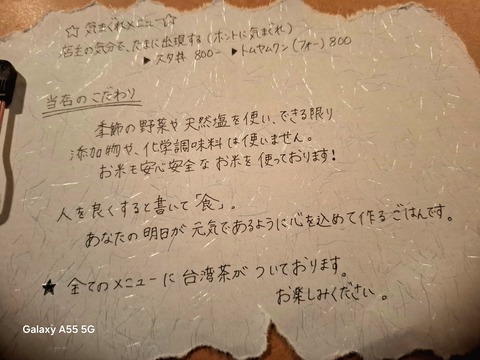 ☆ 気まぐれメニュー ☆
店主の気分で、たまに出現する(ホントに気まぐれ)
▶ スタ丼 800- ▶ トムヤムクン(フォー) 800
当店のこだわり
季節の野菜や天然塩を使い、できる限り
添加物や、化学調味料は使いません。
お米も安心安全なお米を使っております!
人を良くすると書いて「食」。
あなたの明日が元気であるように心を込めて作るごはんです。
★ 全てのメニューに台湾茶がついております。
お楽しみください。
Galaxy A55 5G